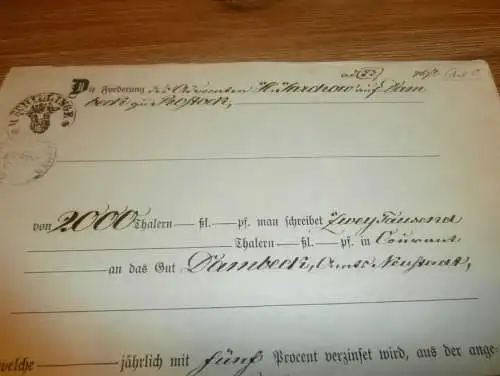 Die Forderung des Advocaten H. Jarchow auf Dam
beck zu Rostock,
von 2000 Thalern — ßl. — pf. man schreibet Zwey Tausend
Thalern — ßl. — pf. in Courant
an das Gut Dambeck, Amts Neustadt,
welche jährlich mit fünf Procent verzinset wird, aus der ange-